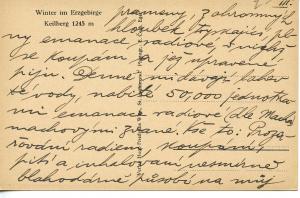 Winter im Erzgebirge
Keilberg 1245 m
III.
prameny, z ohromných
hloubek tryskající, pl-
ny emanace radiové, v nichž
se koupám a jej upravené
piju. Denně mi dávají lahev
té vody, nabité 50,000 jednotka-
mi emanace radiové (dle Macha
machovými zvané. Vše to: Proza-
řování radiem, koupání,
pití a inhalování nesmírně
blahodárně působí na můj